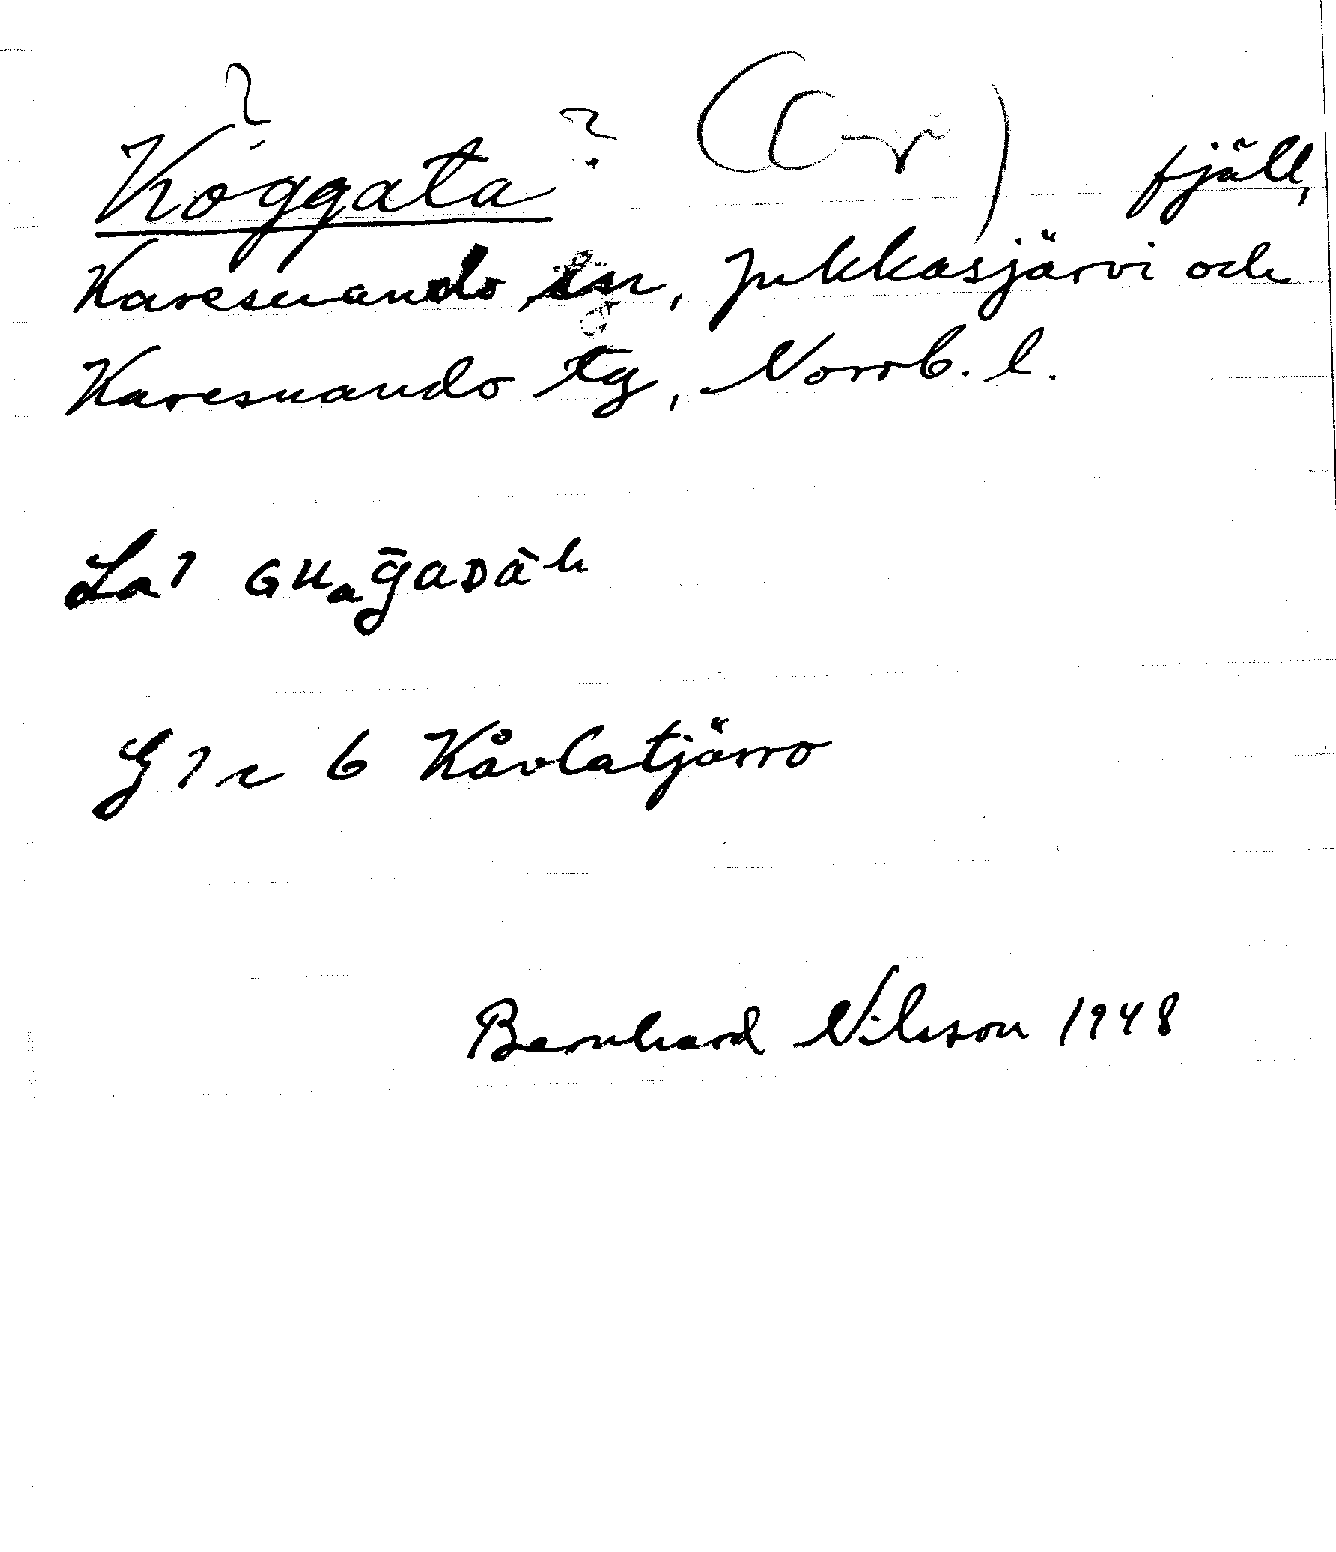 ? Koggata ? fjäll,
Karesuando sn, Jukkasjärvi och
Karesuando tg, Norrb. l.
La1 GUaḡADÀh
G 1 r 6 Kåvlatjårro
Bernhard Nilsson 1948